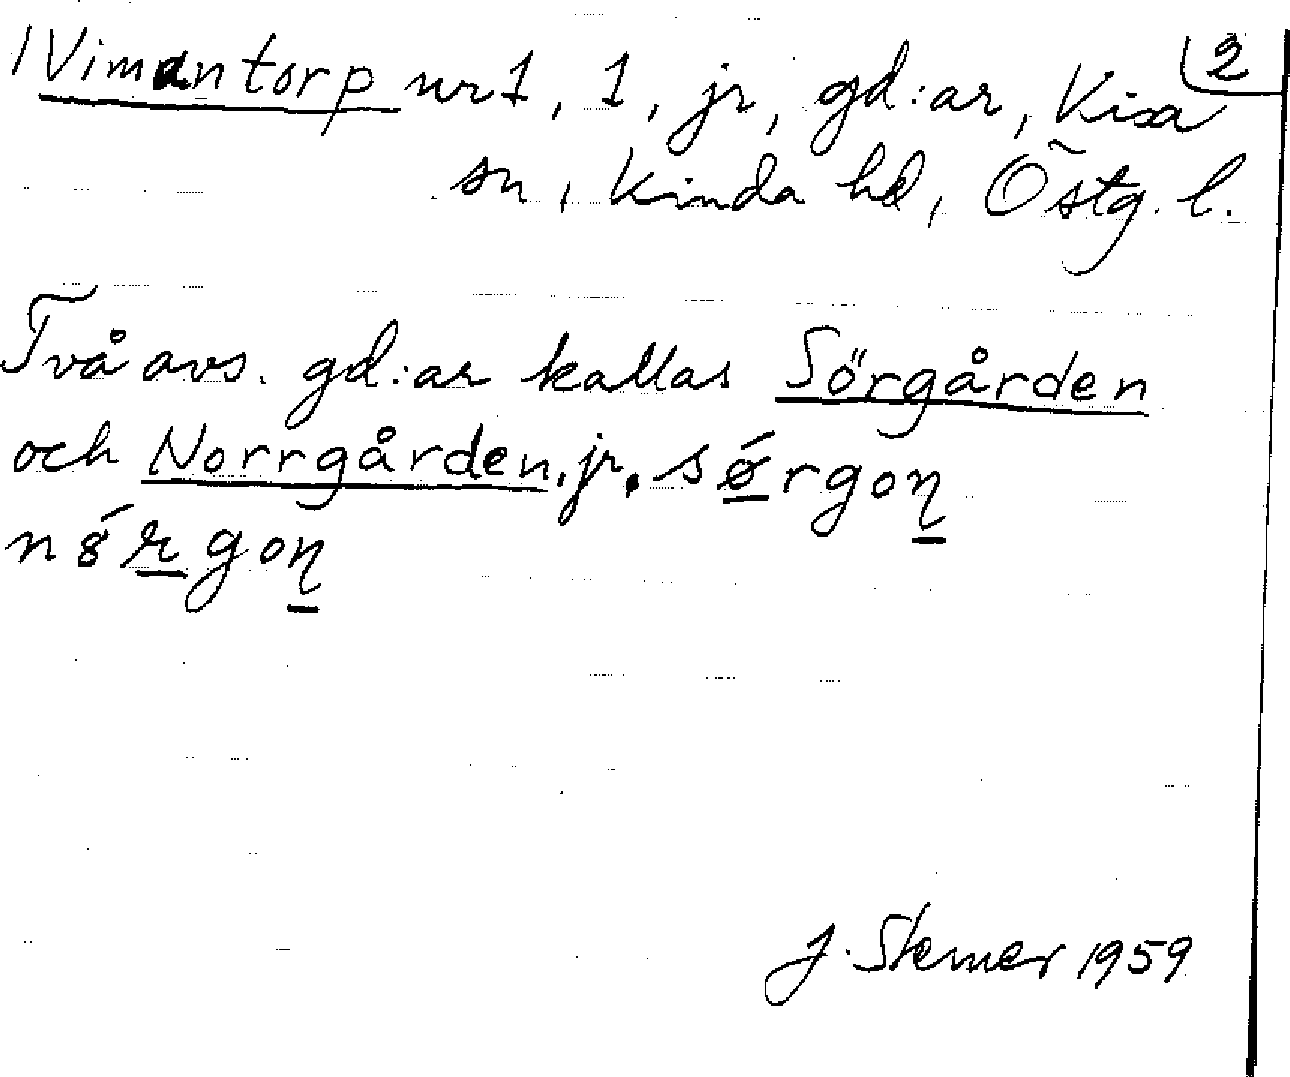 1 Vimantorp nr 1, 1, jr, gd:ar, Kisa 2
sn, Kinda hd, Östg. l.
Två avs. gd:ar kallas Sörgården
och Norrgården, jr. sǿrgoṇ
n
1959